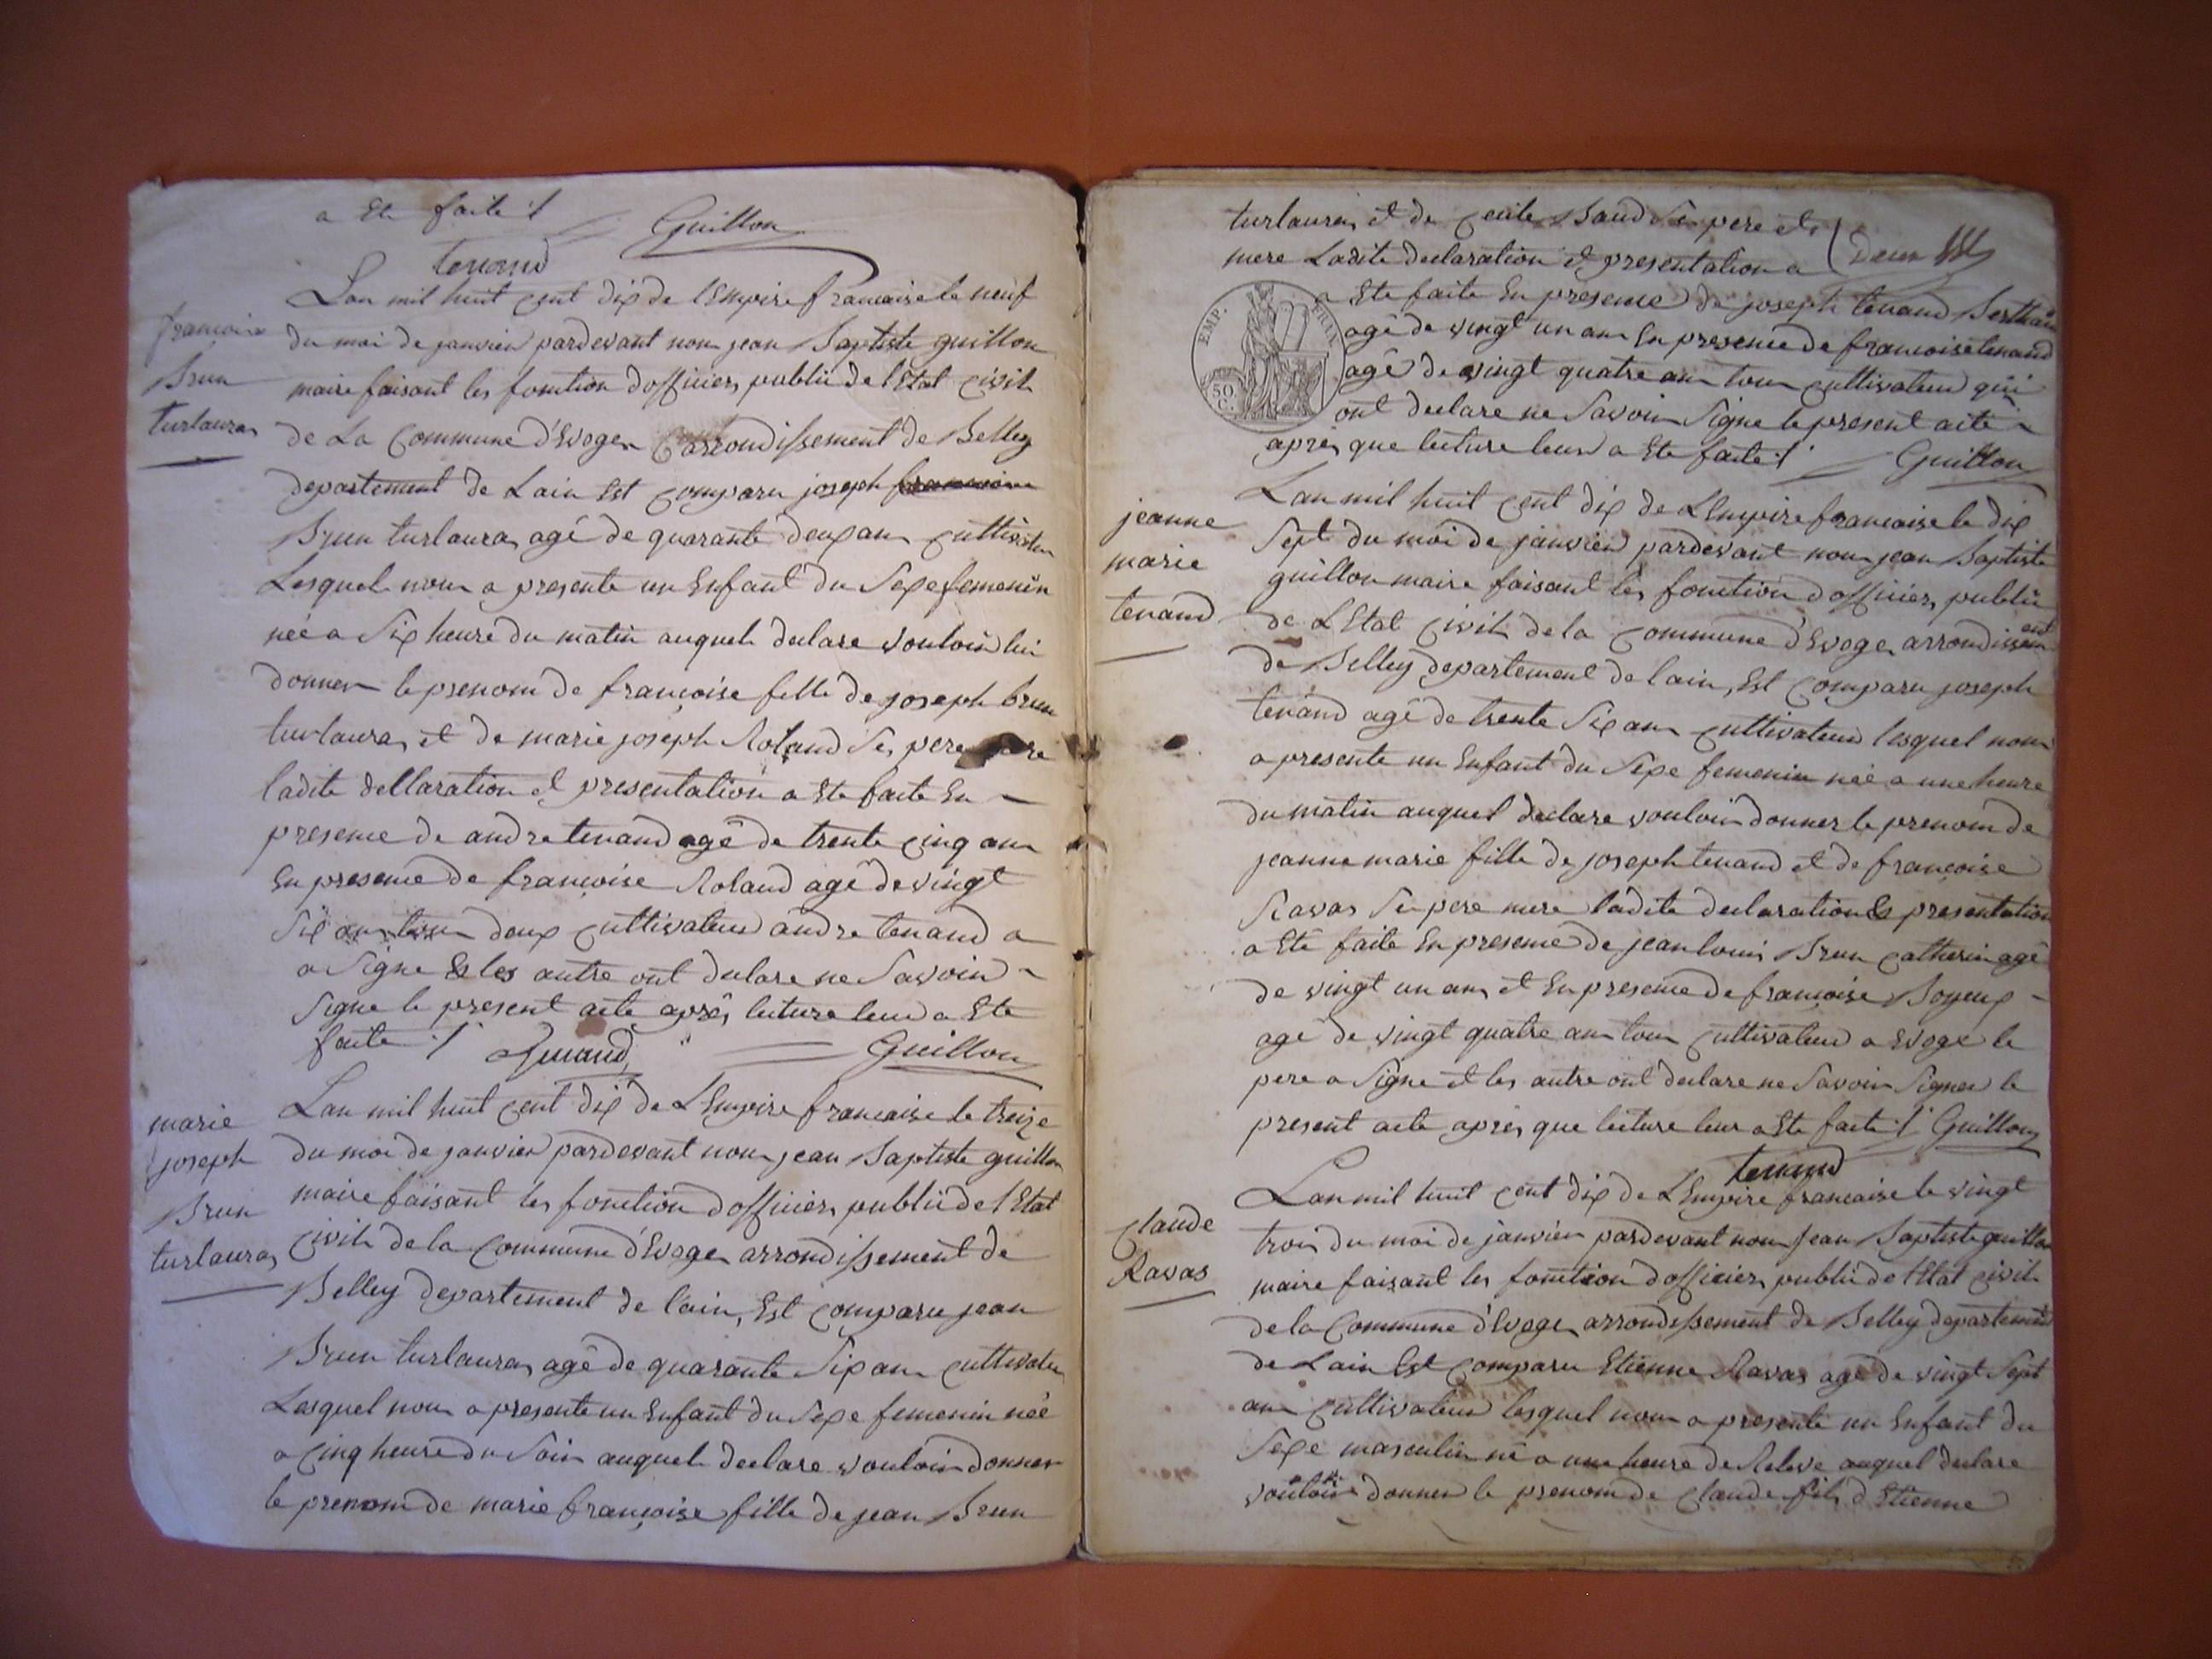 a Ete faite ./.
Guillon
tenand
Lan mil huit cent dix de lEmpire francaise le neuf
du moi de janvier pardevant nous jean Baptiste guillon
maire faisant les fonction dofficier public de lEtat civil
de La Commune d'Evoges arrondissement de Belley
departement de Lain Est comparu joseph
Brun turlauras agé de quarante deux ans cultivateur
Lesquel nous a presente un Enfant du Sexe femenin
née a Six heure du matin auquel declare vouloir lui
donner le prenom de françoise fille de joseph brun
turlauras et de marie joseph Roland Ses pere mere
ladite dellaration et presentation a Ete faite En
presence de andre tenand agé de trente cinq ans
En presence de francoise Roland agé de vingt
Six ans tous deux cultivateur andre tenand a
a Signe & les autre ont declare ne Savoir
Signe le present acte après lecture leur a Ete
faite ./. tenand Guillon
francoise
Brun
turlauras
Lan mil huit cent dix de LEmpire francaise le treize
du moi de janvier pardevant nous jean Baptiste guillon
maire faisant les fonction dofficier public de lEtat
civil de la Commune d'Evoges arrondissement de
Belley departement de lain, Est comparu jean
Brun turlauras agé de quarante Six ans cultivateur
Lesquel nous a presente un Enfant du Sexe femenin née
a cinq heure du Soir auquel declare vouloir donner
le prenom de marie françoise fille de jean Brun
marie
joseph
Brun
turlauras
turlauras et de cecile Baud Ses pere et
mere Ladite declaration et presentation a
EMP. FRAN.
50 C.
a Ete faite En presence de joseph tenand Berthain
agé de vingt un ans En presence de francoise tenand
agé de vingt quatre ans tous cultivateur qui
ont declare ne Savoir Signe le present acte
après que lecture leur a Ete faite ./. Guillon
Lan mil huit cent dix de LEmpire francaise le dix
Sept du moi de janvier pardevant nous jean Baptiste
guillon maire faisant les fonction dofficier public
de LEtat civil de la commune d'Evoges arrondissement
de Belley departement de lain, Est comparu joseph
tenand agé de trente Six ans cultivateur lesquel nous
a presente un Enfant du Sexe femenin née a une heure
du matin auquel declare vouloir donner le prenom de
jeanne marie fille de joseph tenand et de françoise
Ravas Ses pere mere ladite declaration & presentation
a Eté faite En presence de jean louis Brun catherin agé
de vingt un ans et En presence de francoise Boyeux
agé de vingt quatre ans tous cultivateur a Evoge le
pere a Signe et les autre ont declare ne Savoir Signer le
present acte après que lecture leur a Ete faite ./. Guillon
tenand
jeanne
marie
tenand
Lan mil huit cent dix de LEmpire francaise le vingt
trois du moi de janvier pardevant nous Jean Baptiste guillon
maire faisant les fonction dofficier public de lEtat civil
de la Commune d'Evoges arrondissement de Belley departement
de Lain Est comparu Etienne Ravas agé de vingt Sept
ans cultivateur lesquel nous a presente un Enfant du
Sexe masculin né a une heure de Releve auquel declare
vouloir donner le prenom de Claude fils d'Etienne
Claude
Ravas